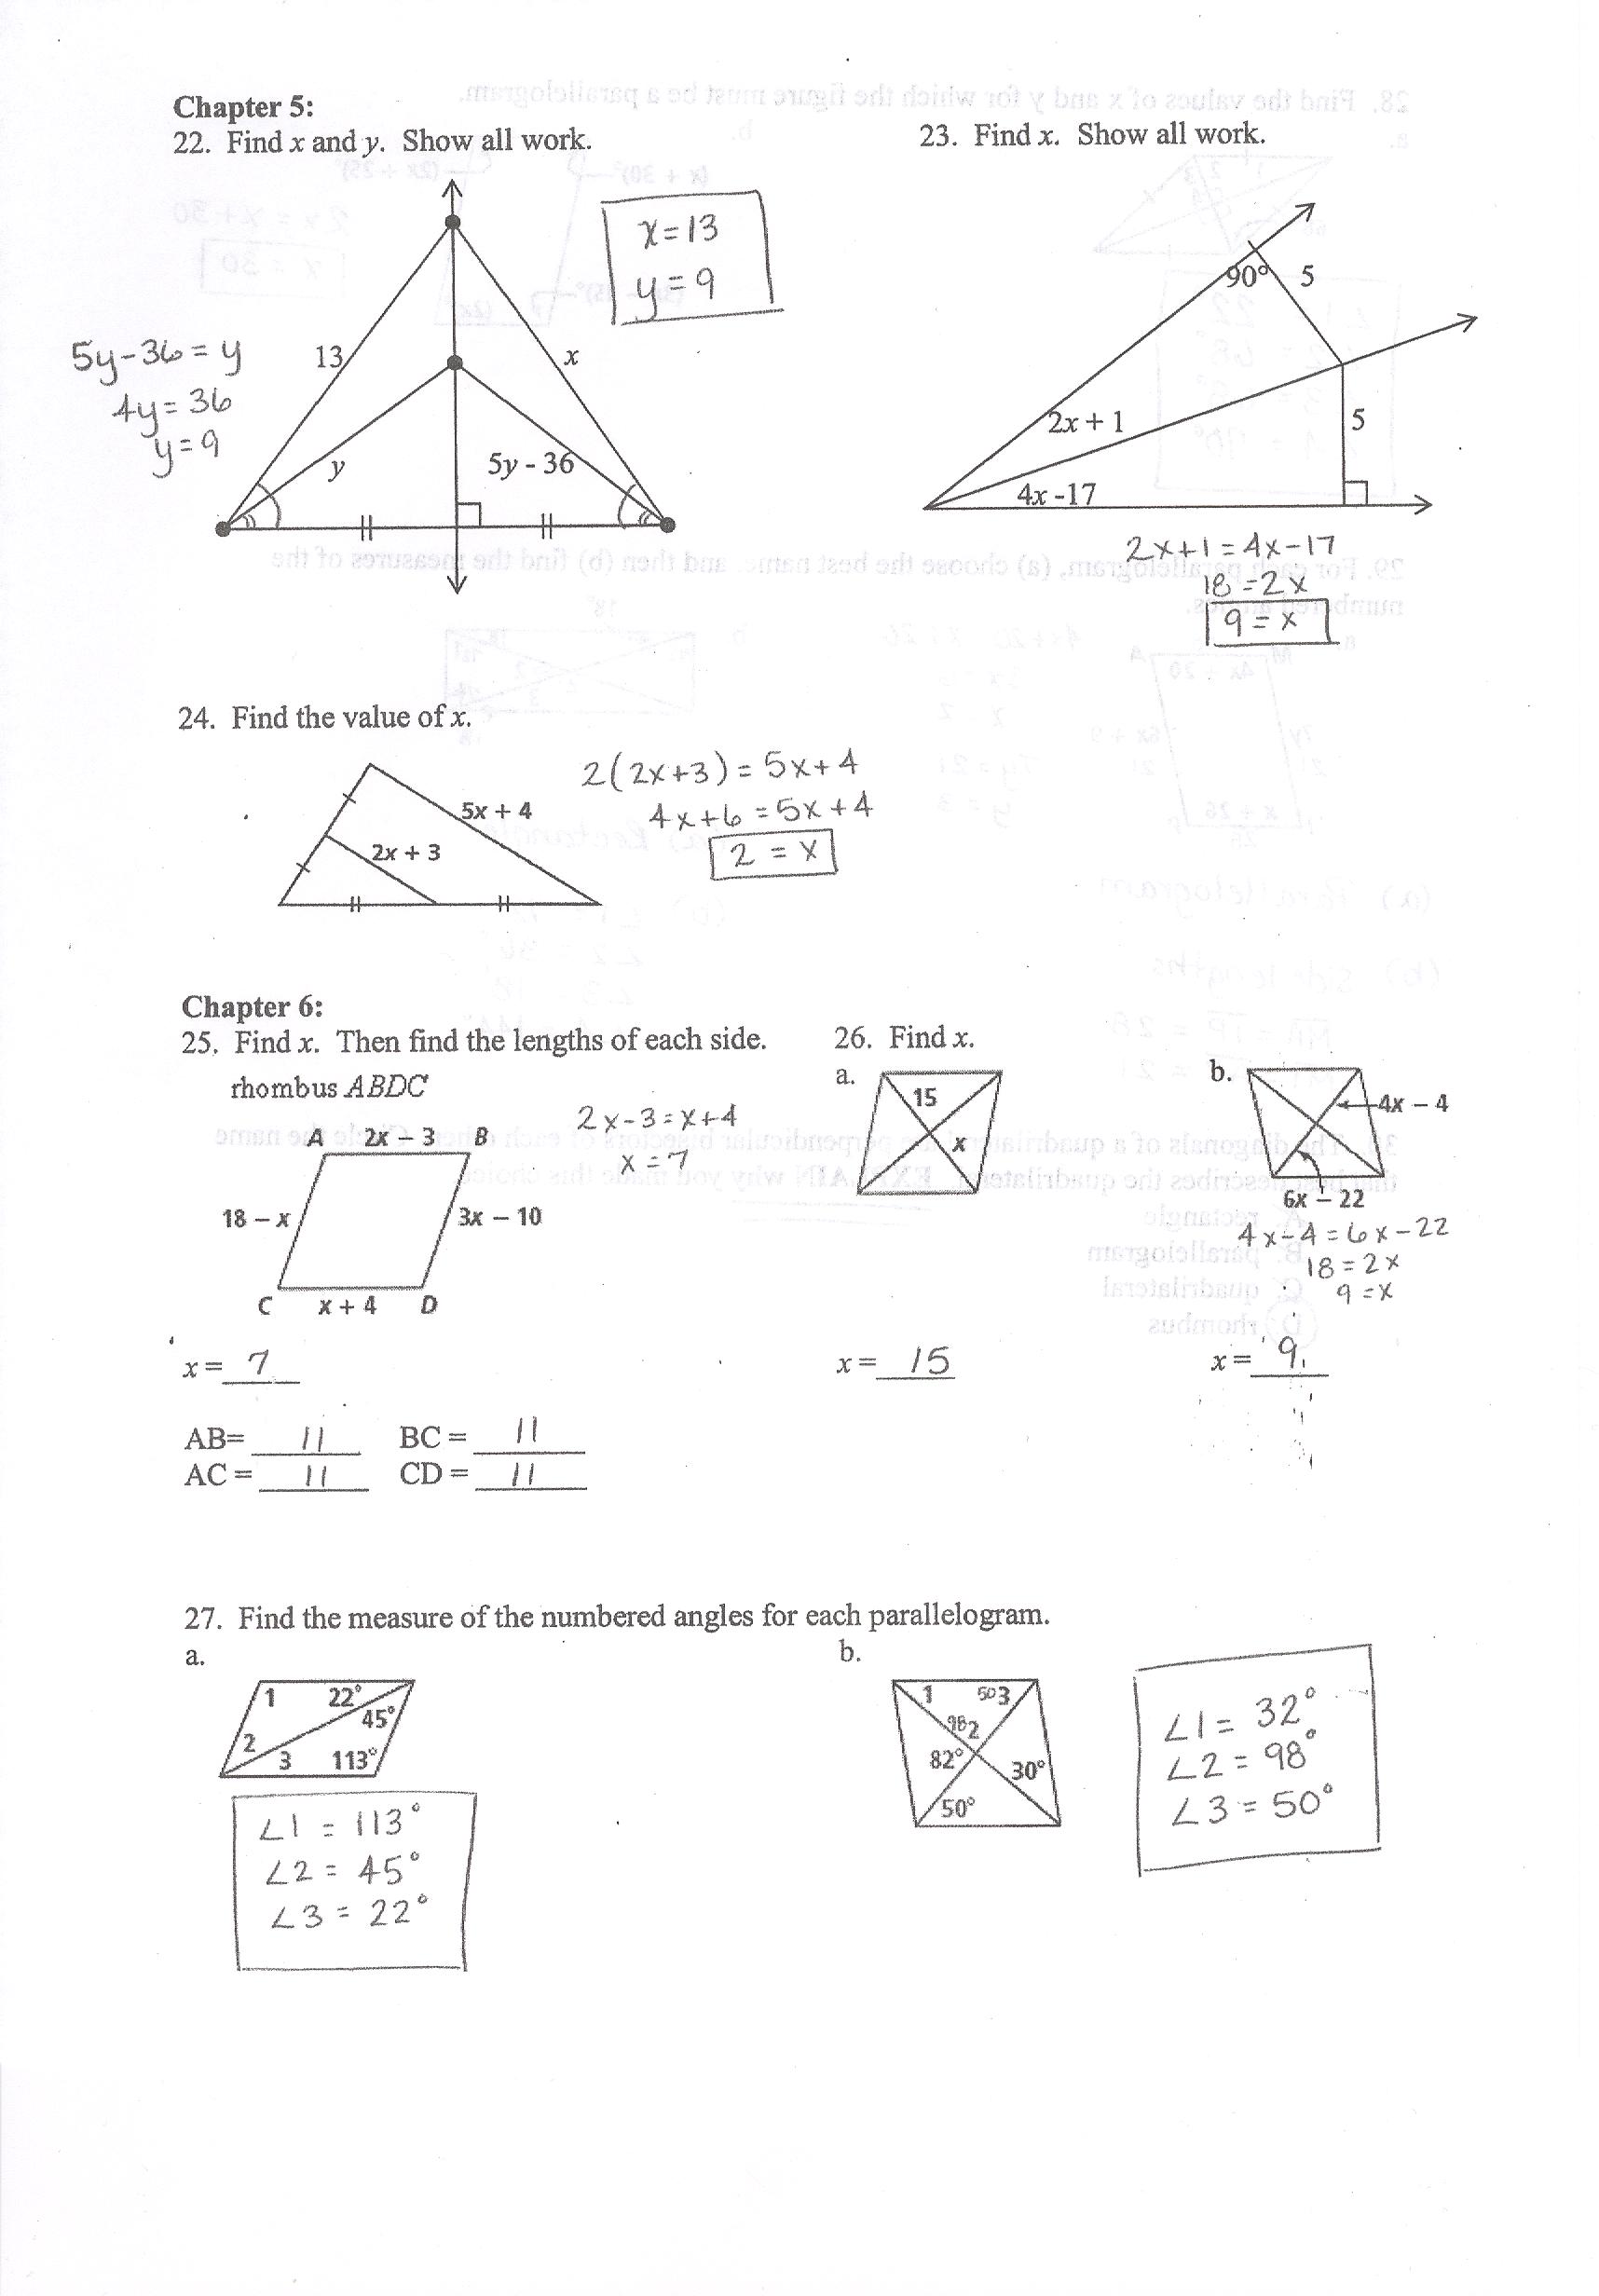 Chapter 5:
22. Find x and y. Show all work.
x = 13
y = 9
5y-36 = y
4y = 36
y = 9
13
x
y
5y - 36
23. Find x. Show all work.
90°
5
2x + 1
5
4x -17
2x+1 = 4x-17
18 = 2x
9 = x
24. Find the value of x.
5x + 4
2x + 3
2(2x+3) = 5x+4
4x+6 = 5x+4
2 = x
Chapter 6:
25. Find x. Then find the lengths of each side.
rhombus ABDC
A 2x – 3 B
18 – x
3x – 10
C x + 4 D
2x-3 = x+4
x = 7
x = 7
AB= 11 BC = 11
AC = 11 CD = 11
26. Find x.
a.
15
x
x = 15
b.
4x – 4
6x – 22
4x-4 = 6x-22
18 = 2x
9 = x
x = 9
27. Find the measure of the numbered angles for each parallelogram.
a.
1 22°
45°
2
3 113°
∠1 = 113°
∠2 = 45°
∠3 = 22°
b.
1 50 3
98 2
82° 30°
50°
∠1 = 32°
∠2 = 98°
∠3 = 50°